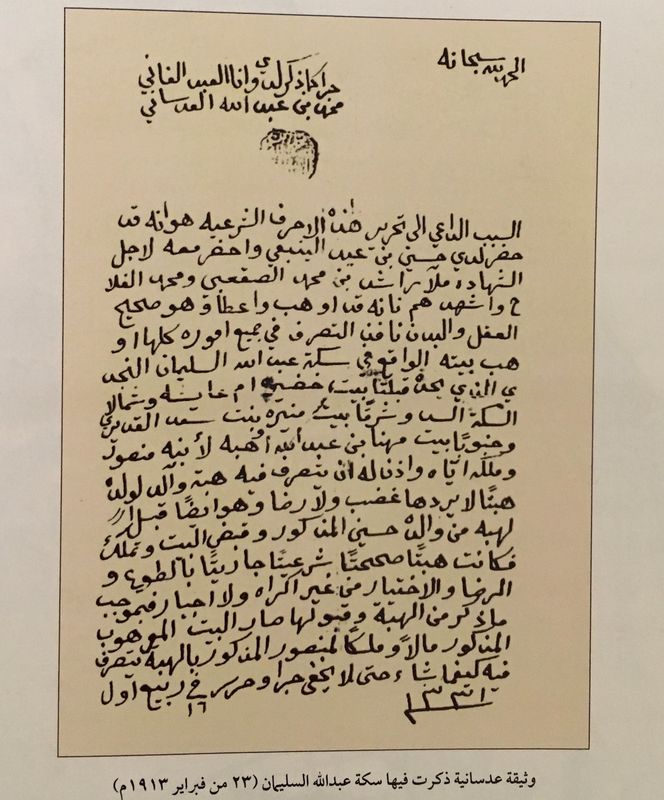 الحمد لله سبحانه
جرا كما ذكر لدي وانا العبد الفاني
محمد بن عبد الله العدساني
السبب الداعي الى تحرير هذه الاحرف الشرعيه هو انه قد
حضر لدي حسني بن عيد الينبعي واحضر معه لاجل
الشهاده ملا راشد بن محمد الصقعبي ومحمد الفلا
ح واشهدهم بانه قد اوهب واعطا وهو صحيح
العقل والبدن نافذ التصرف في جميع اموره كلها او
هب بيته الواقع في سكة عبد الله السليمان النجد
ي الذي يحده قبلتًا بيت خضير ام عايشه وشمالا
السكة السد وشرقًا بيت منيره بنت سعد القديري
وجنوبًا بيت مهنا بن عبد الله اوهبه لأبنه منصور
وملكه اياه واذن له ان يتصرف فيه هبة والد لولده
هبتًا لا يردها غضب ولا رضا وهو ايضًا قبل
لهبه من والده حسني المذكور وقبض البيت وتملك
فكانت هبتًا صحيحتًا شرعيتًا جازيتًا بالطوع و
الرضا والاختيار من غير اكراه ولا اجبار فبموجب
ما ذكر من الهبة وقبولها صار البيت الموهوب
المذكور مالاً وملكًا لمنصور المذكور بالهبة يتصرف
فيه كيفما شاء حتى لا يخفى جرا وحرر في ١٦ ربيع أول
١٣٣١
وثيقة عدسانية ذكرت فيها سكة عبدالله السليمان (٢٣ من فبراير ١٩١٣م)